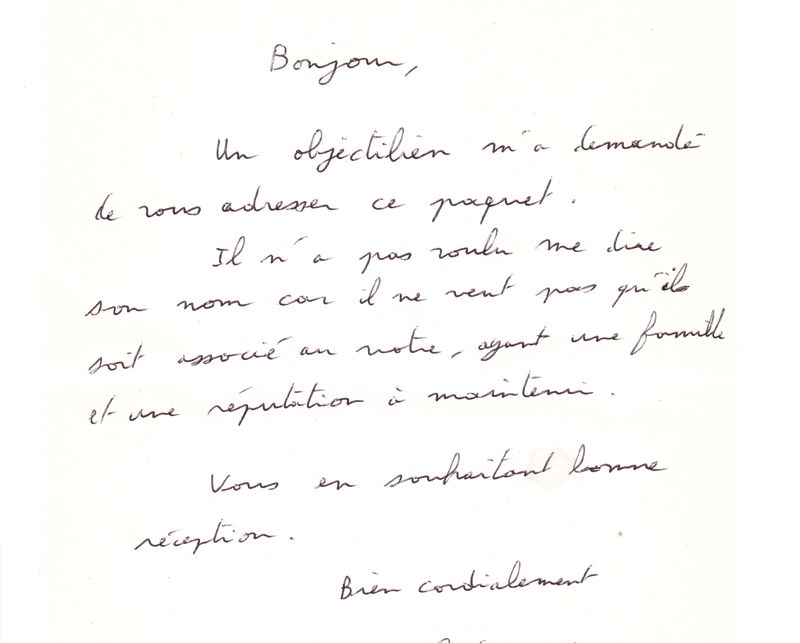 Bonjour,
Un objèctilièn m'a demandé
de vous adresser ce paquet.
Il n'a pas voulu me dire
son nom car il ne veut pas qu'ils
soit associé au notre, ayant une famille
et une réputation à maintenir.
Vous en souhaitant bonne
réception.
Bien cordialement